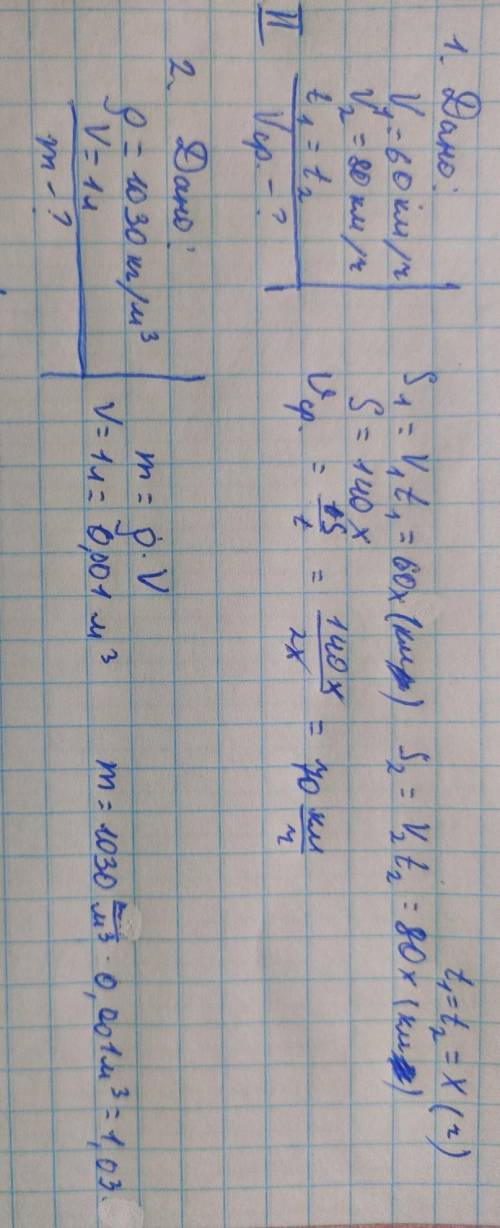 II
1. Дано:
V₁ = 60 км/ч
V₂ = 80 км/ч
t₁ = t₂
Vср. - ?
t₁ = t₂ = x (ч)
S₁ = V₁t₁ = 60x (км) S₂ = V₂t₂ = 80x (км)
S = 140x
Vср. = S/t = 140x/2x = 70 км/ч
2. Дано:
ρ = 1030 кг/м³
V = 1л
m - ?
m = ρ · V
V = 1л = 0,001 м³
m = 1030 кг/м³ · 0,001м³ = 1,03